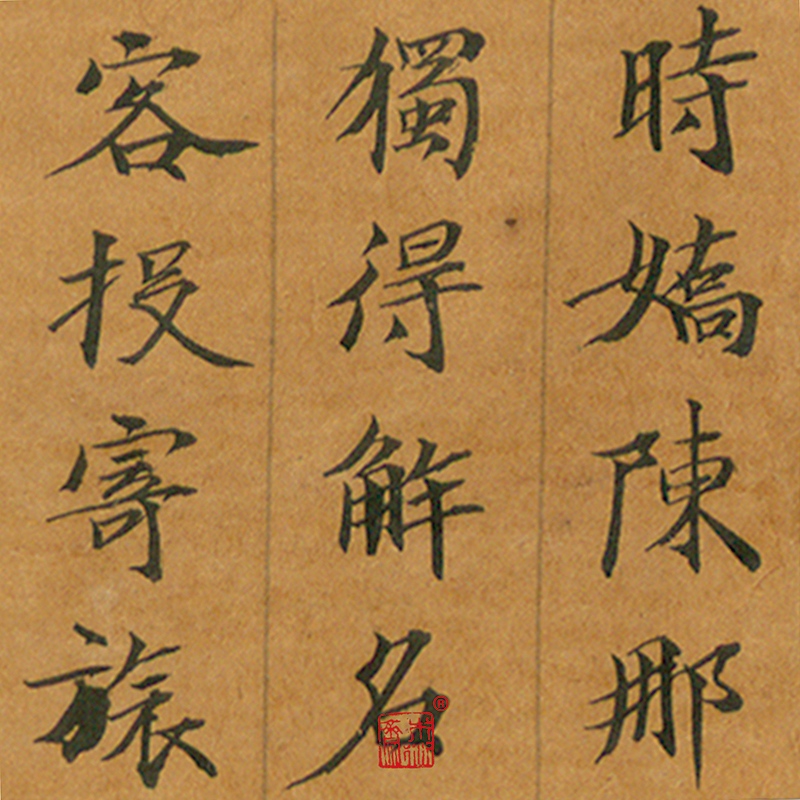 時嬌陳那
獨得解名
客投寄旅
®